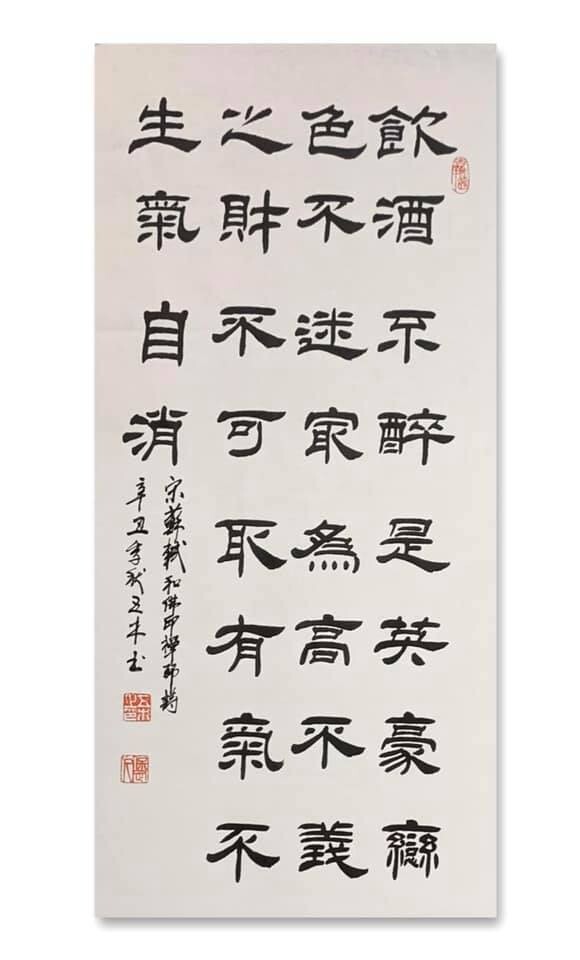 飲酒不醉是英豪戀
色不迷冣為高不義
之財不可取有氣不
生氣自消
宋蘇軾和佛印禪師詩
辛丑季秋木书